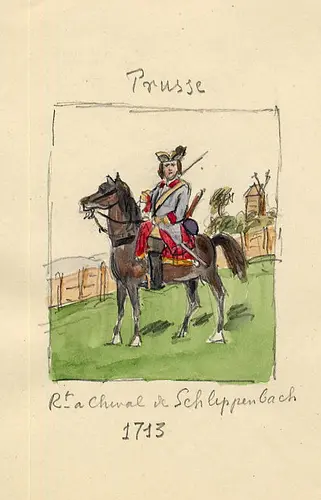 Prusse
Rt a Cheval de Schlippenbach
1713